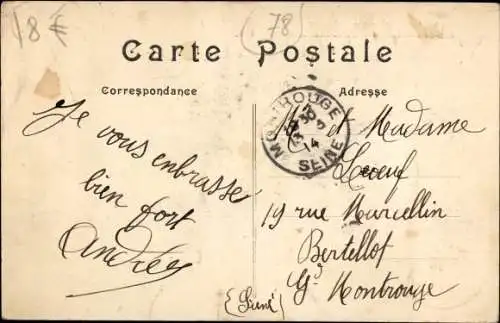 8 €
(78)
Carte Postale
Correspondance
Adresse
MONTROUGE
14
SEINE
Je vous enbrasse
bien fort
Andrée
M et Madame
Lœuf
19 rue Marcellin
Bertellot
Gd Montrouge
(Seine)